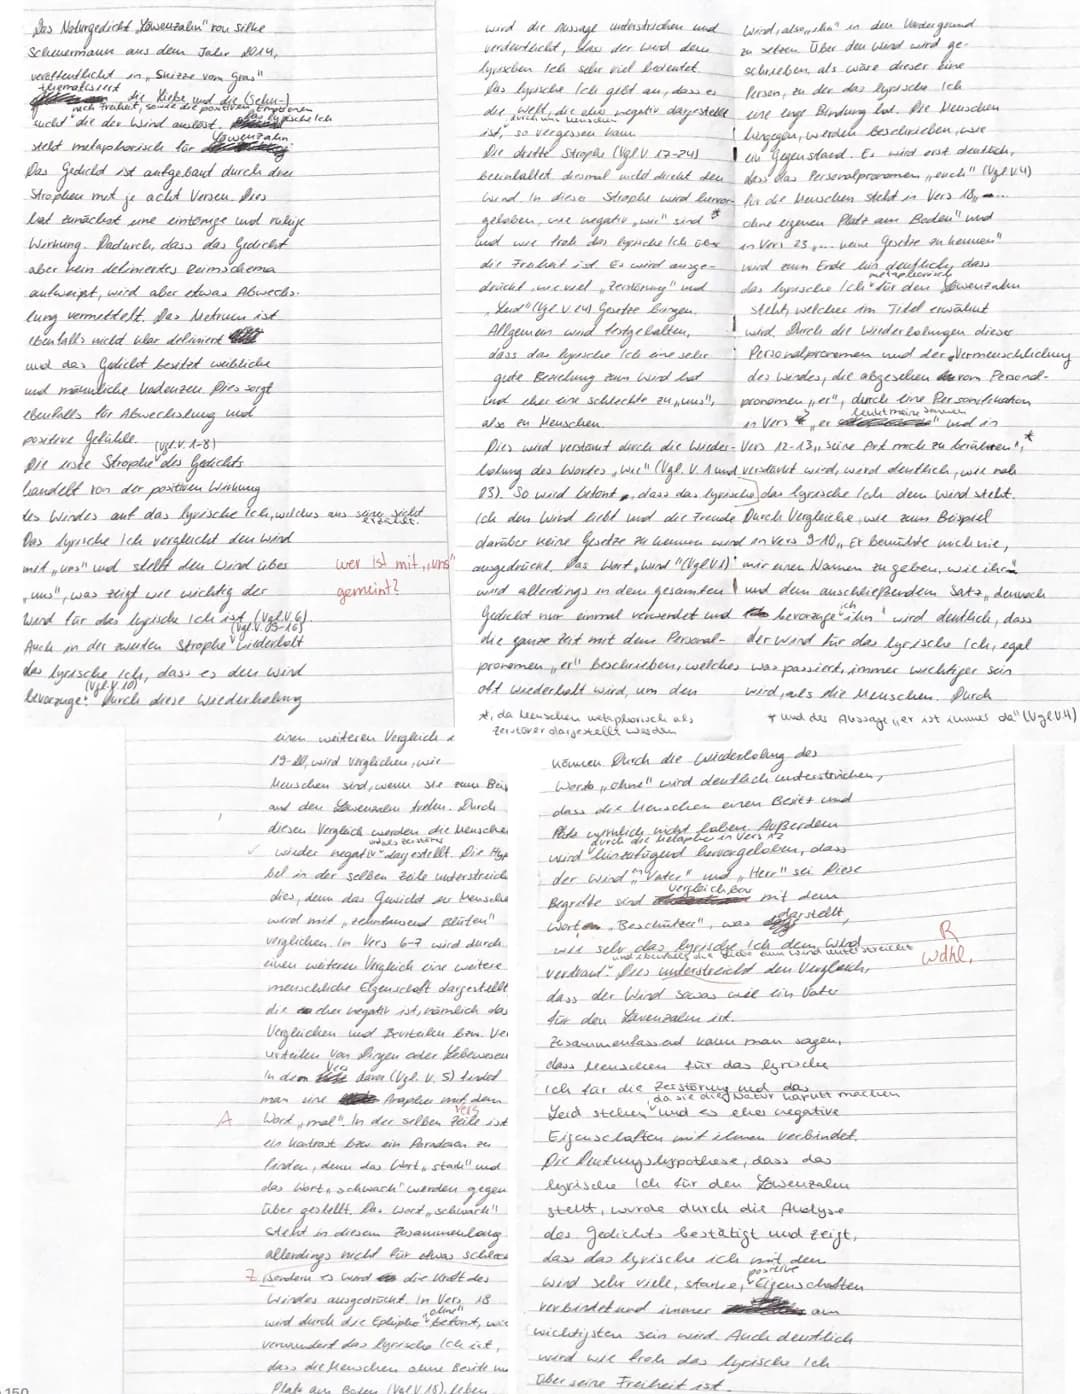 Das Naturgedicht „Löwenzahn" von Silke
Scheuermann aus dem Jahr 2014,
veröffentlicht in „Skizze vom Gras"
thematisiert
die Liebe und die (Sehn-)
nach Freiheit, sowie die positiven Emotionen
sucht die der Wind auslöst. Das lyrische Ich
steht metaphorisch für Löwenzahn
Das Gedicht ist aufgebaut durch drei
Strophen mit je acht Versen. Dies
hat zunächst eine eintönige und ruhige
Wirkung. Dadurch, dass das Gedicht
aber kein definiertes Reimschema
aufweist, wird aber etwas Abwechs-
lung vermittelt. Das Metrum ist
ebenfalls nicht klar definiert
und das Gedicht besitzt weibliche
und männliche Kadenzen. Dies sorgt
ebenfalls für Abwechslung und
positive Gefühle.
Die erste Strophe (vgl. V. 1-8) des Gedichts
handelt von der positiven Wirkung
des Windes auf das lyrische Ich, welches aus seiner Sicht
erzählt.
Das lyrische Ich vergleicht den Wind
mit „uns" und stellt den Wind über
„uns", was zeigt wie wichtig der
Wind für das lyrische Ich ist (Vgl. V. 6).
wer ist mit „uns"
gemeint?
Auch in der zweiten Strophe (Vgl. V. 09-16) wiederholt
das lyrische Ich, dass es den Wind
bevorzuge (Vgl. V. 10). Durch diese Wiederholung
wird die Aussage unterstrichen und
verdeutlicht, dass der Wind dem
lyrischen Ich sehr viel bedeutet.
Das lyrische Ich gibt an, dass es
die Welt, die eher negativ dargestellt
ist, durch uns Menschen so vergessen kann.
Die dritte Strophe (Vgl. V. 17-24)
beeinhaltet diesmal nicht direkt den
Wind. In dieser Strophe wird hervor-
gehoben, wie negativ „wir" sind *
und wie froh das lyrische Ich über
die Freiheit ist. Es wird ausge-
drückt wie viel „Zerstörung" und
„Leid" (Vgl. V. 24) Gesetze bringen.
Allgemein wird festgehalten,
dass das lyrische Ich eine sehr
gute Beziehung zum Wind hat
und eher eine schlechte zu „uns",
also zu Menschen.
Dies wird verstärkt durch die Wieder-
holung des Wortes „Wie" (Vgl. V. 1 und
23). So wird betont, dass das lyrische
Ich den Wind liebt und die Freude
darüber keine Gesetze zu kennen wird
ausgedrückt. Das Wort „Wind" (Vgl. V. 1)
wird allerdings in dem gesamten
Gedicht nur einmal verwendet und
die ganze Zeit mit dem Personal-
pronomen „er" beschrieben, welches
oft wiederholt wird, um den
*, da Menschen metaphorisch als
Zerstörer dargestellt werden
Wind, also „ihn" in den Vordergrund
zu setzen. Über den Wind wird ge-
schrieben, als wäre dieser eine
Person, zu der das lyrische Ich
eine enge Bindung hat. Die Menschen
hingegen, werden beschrieben, wie
ein Gegenstand. Es wird erst deutlich,
dass das Personalpronomen „euch" (Vgl. V. 4)
für die Menschen steht in Vers 18 „...
ohne eigenen Platz am Boden" und
in Vers 23 „... keine Gesetze zu kennen"
wird zum Ende hin deutlich, dass
das lyrische Ich metaphorisch für den Löwenzahn
steht, welcher im Titel erwähnt
wird. Durch die Wiederholungen dieser
Personalpronomen und der Vermenschlichung
des Windes, die abgesehen vom Personal-
pronomen „er", durch eine Personifikation
in Vers 3 „er lenkt meine Samen" und in
Vers 12-13 „seine Art mich zu berühren", *
verstärkt wird, wird deutlich, wie nah
das lyrische Ich dem Wind steht.
Durch Vergleiche, wie zum Beispiel
in Vers 9-10 „Er bemühte mich nie,
mir einen Namen zu geben, wie ihr"
und dem anschließendem Satz „dennoch
bevorzuge ich ihn" wird deutlich, dass
der Wind für das lyrische Ich, egal
was passiert, immer wichtiger sein
wird, als die Menschen. Durch
* und der Aussage „er ist immer da" (Vgl. V. 4)
einen weiteren Vergleich
19-20, wird verglichen, wie
Menschen sind, wenn sie zum Beis
auf den Löwenzahn treten. Durch
diesen Vergleich werden die Menschen
wieder negativ und als Zerstörer dargestellt. Die Hyp
bel in der selben Zeile unterstreich
dies, denn das Gewicht der Mensche
wird mit „zehntausend Blüten"
verglichen. In Vers 6-7 wird durch
einen weiteren Vergleich eine weitere
menschliche Eigenschaft dargestellt,
die eher negativ ist, nämlich das
Vergleichen und Beurteilen bzw. Ver
urteilen von Dingen oder Lebewesen
In dem Vers davor (Vgl. V. 5) findet
man eine Anapher mit dem
A
Wort „mal". In der selben Zeile Vers ist
ein Kontrast bzw. ein Paradoxon zu
finden, denn das Wort „stark" und
das Wort „schwach" werden gegen
über gestellt. Das Wort „schwach"
steht in diesem Zusammenhang
allerdings nicht für etwas schlech
Z
sondern es wird die Kraft des
Windes ausgedrückt. In Vers 18
wird durch die Epipher „ohne" betont, wie
verwundert das lyrische Ich ist,
dass die Menschen ohne Besitz un
Platz am Boden (Vgl. V. 18). leben
können. Durch die Wiederholung des
Worts „ohne" wird deutlich unterstrichen,
dass die Menschen einen Besitz und
Platz nicht haben. Außerdem
wird durch die Metapher in Vers 12 hinzufügend hervorgehoben, dass
der Wind „Vater" und „Herr" sei. Diese
Begriffe sind vergleichbar mit dem
Wort „Beschützer", was darstellt,
wie sehr das lyrische Ich dem Wind
vertraut und ebenfalls die Liebe zum Wind unterstreicht.
R
Wdhl.
Dies unterstreicht den Vergleich,
dass der Wind sowas wie ein Vater
für den Löwenzahn ist.
Zusammenfassend kann man sagen,
dass Menschen für das lyrische
Ich für die Zerstörung und das
Leid stehen, da sie die Natur kaputt machen und es eher negative
Eigenschaften mit ihnen verbindet.
Die Deutungshypothese, dass das
lyrische Ich für den Löwenzahn
steht, wurde durch die Analyse
des Gedichts bestätigt und zeigt,
dass das lyrische ich mit dem
Wind sehr viele, starke, positive Eigenschaften
verbindet und immer am
wichtigsten sein wird. Auch deutlich
wird wie froh das lyrische Ich
über seine Freiheit ist.
150